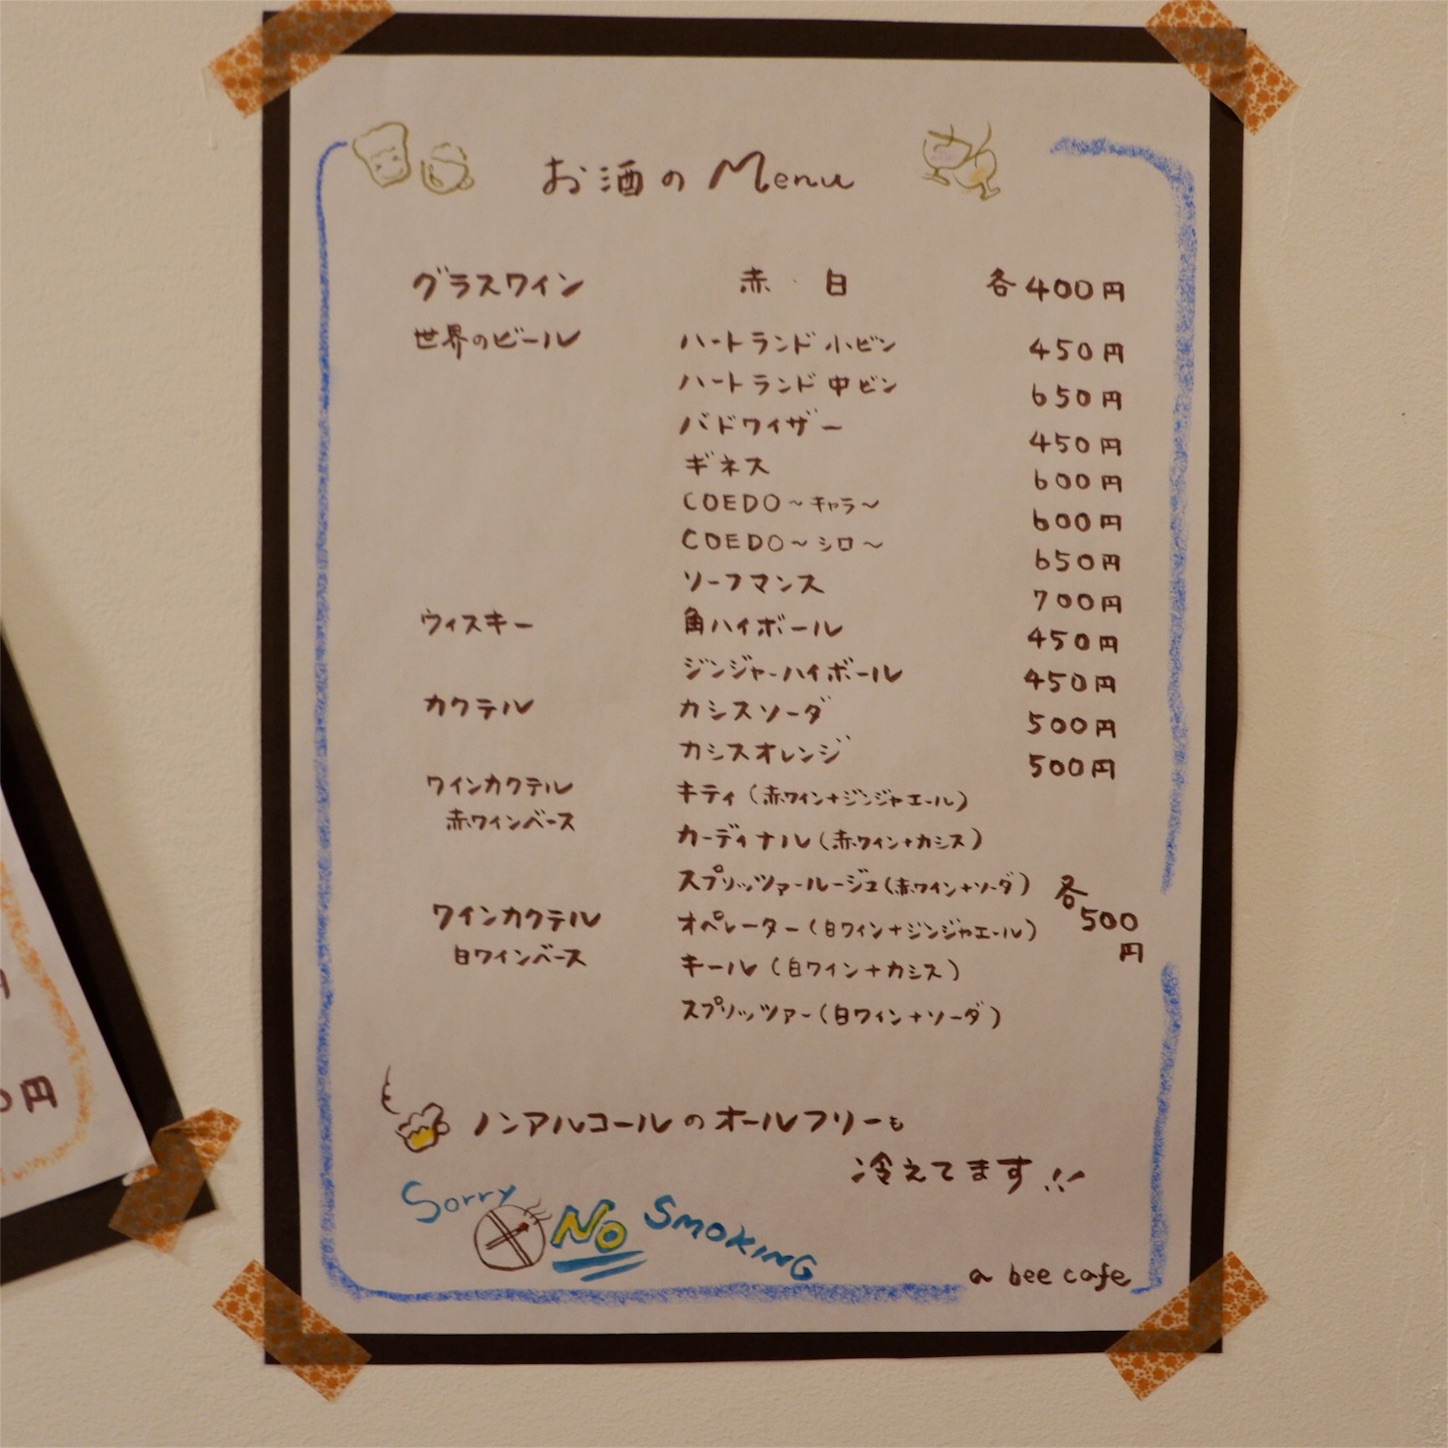 お酒のMenu
グラスワイン 赤・白 各400円
世界のビール ハートランド 小ビン 450円
ハートランド 中ビン 650円
バドワイザー 450円
ギネス 600円
COEDO～キャラ～ 600円
COEDO～シロ～ 650円
ソーフマンス 700円
ウィスキー 角ハイボール 450円
ジンジャーハイボール 450円
カクテル カシスソーダ 500円
カシスオレンジ 500円
ワインカクテル キティ(赤ワイン+ジンジャエール)
赤ワインベース カーディナル(赤ワイン+カシス)
スプリッツァールージュ(赤ワイン+ソーダ) 各
ワインカクテル オペレーター(白ワイン+ジンジャエール) 500
円
白ワインベース キール(白ワイン+カシス)
スプリッツァー(白ワイン+ソーダ)
ノンアルコールのオールフリーも
冷えてます!!
Sorry No SMOKING
a bee cafe
円